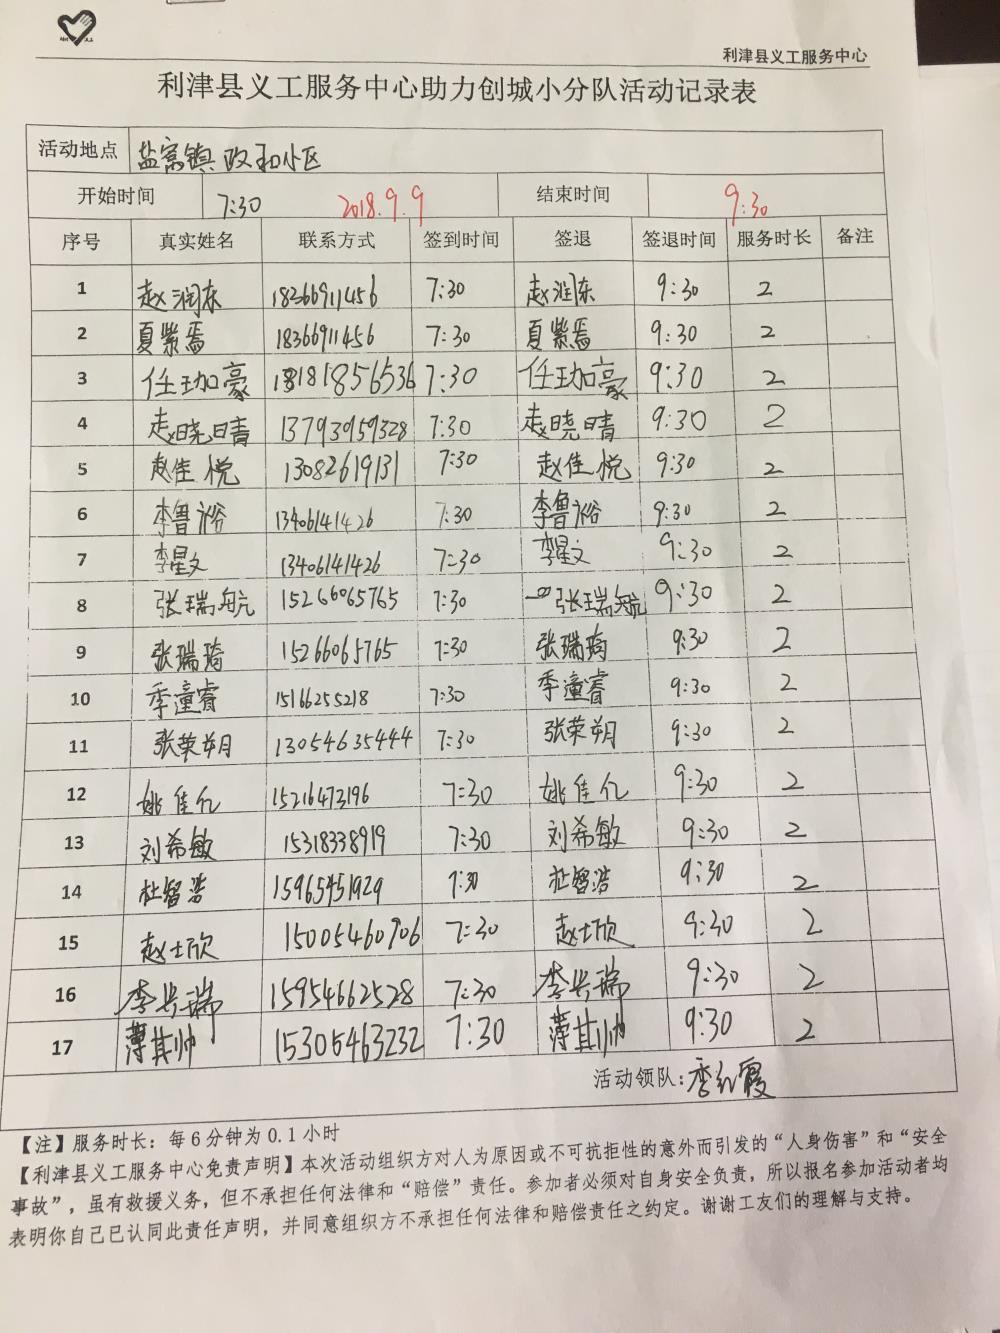 利津县义工服务中心
利津县义工服务中心助力创城小分队活动记录表
活动地点 盐窝镇政和小区
开始时间 7:30 2018.9.9 结束时间 9:30
序号 真实姓名 联系方式 签到时间 签退 签退时间 服务时长 备注
1 赵润东 18366911456 7:30 赵润东 9:30 2
2 夏紫焉 18366911456 7:30 夏紫焉 9:30 2
3 任珈豪 18181856536 7:30 任珈豪 9:30 2
4 赵晓晴 13793959328 7:30 赵晓晴 9:30 2
5 赵佳悦 13082619131 7:30 赵佳悦 9:30 2
6 李鲁裕 13406141426 7:30 李鲁裕 9:30 2
7 李星文 13406141426 7:30 李星文 9:30 2
8 张瑞航 15266065765 7:30 张瑞航 9:30 2
9 张瑞琦 15266065765 7:30 张瑞琦 9:30 2
10 季潼睿 15166255218 7:30 季潼睿 9:30 2
11 张荣玥 13054635444 7:30 张荣玥 9:30 2
12 姚佳仪 15216473196 7:30 姚佳仪 9:30 2
13 刘希敏 15318338919 7:30 刘希敏 9:30 2
14 杜智浩 15965451929 7:30 杜智浩 9:30 2
15 赵士欣 15005460906 7:30 赵士欣 9:30 2
16 李兴瑞 15954662528 7:30 李兴瑞 9:30 2
17 薄其帅 15305463232 7:30 薄其帅 9:30 2
活动领队:季红霞
【注】服务时长：每6分钟为0.1小时
【利津县义工服务中心免责声明】本次活动组织方对人为原因或不可抗拒性的意外而引发的“人身伤害”和“安全
事故”，虽有救援义务，但不承担任何法律和“赔偿”责任。参加者必须对自身安全负责，所以报名参加活动者均
表明你自己已认同此责任声明，并同意组织方不承担任何法律和赔偿责任之约定。谢谢工友们的理解与支持。